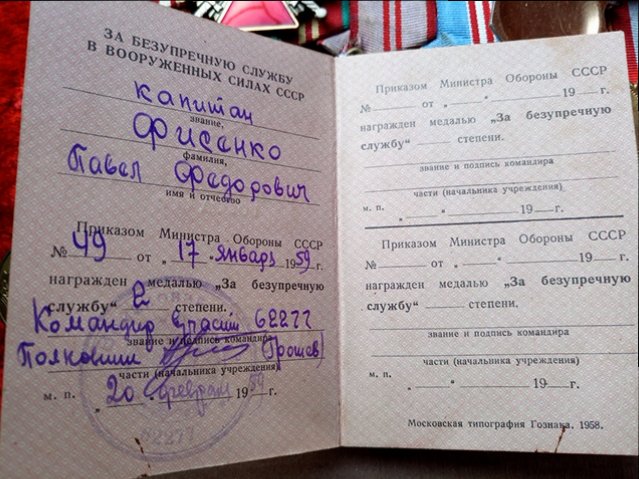 ЗА БЕЗУПРЕЧНУЮ СЛУЖБУ
В ВООРУЖЕННЫХ СИЛАХ СССР
капитан
звание,
Фисенко
фамилия,
Павел Федорович
имя и отчество
Приказом Министра Обороны СССР
№ 49 от „17" января 1959 г.
награжден медалью „За безупречную
службу" 2 степени.
Командир части 62277
звание и подпись командира
Полковник (Грошев)
части (начальника учреждения)
м. п. „20" февраля 1959 г.
62277
Приказом Министра Обороны СССР
№ от „ " 19 г.
награжден медалью „За безупречную
службу" степени.
звание и подпись командира
части (начальника учреждения)
м. п. „ " 19 г.
Приказом Министра Обороны СССР
№ от „ " 19 г.
награжден медалью „За безупречную
службу" степени.
звание и подпись командира
части (начальника учреждения)
м. п. „ " 19 г.
Московская типография Гознака. 1958.